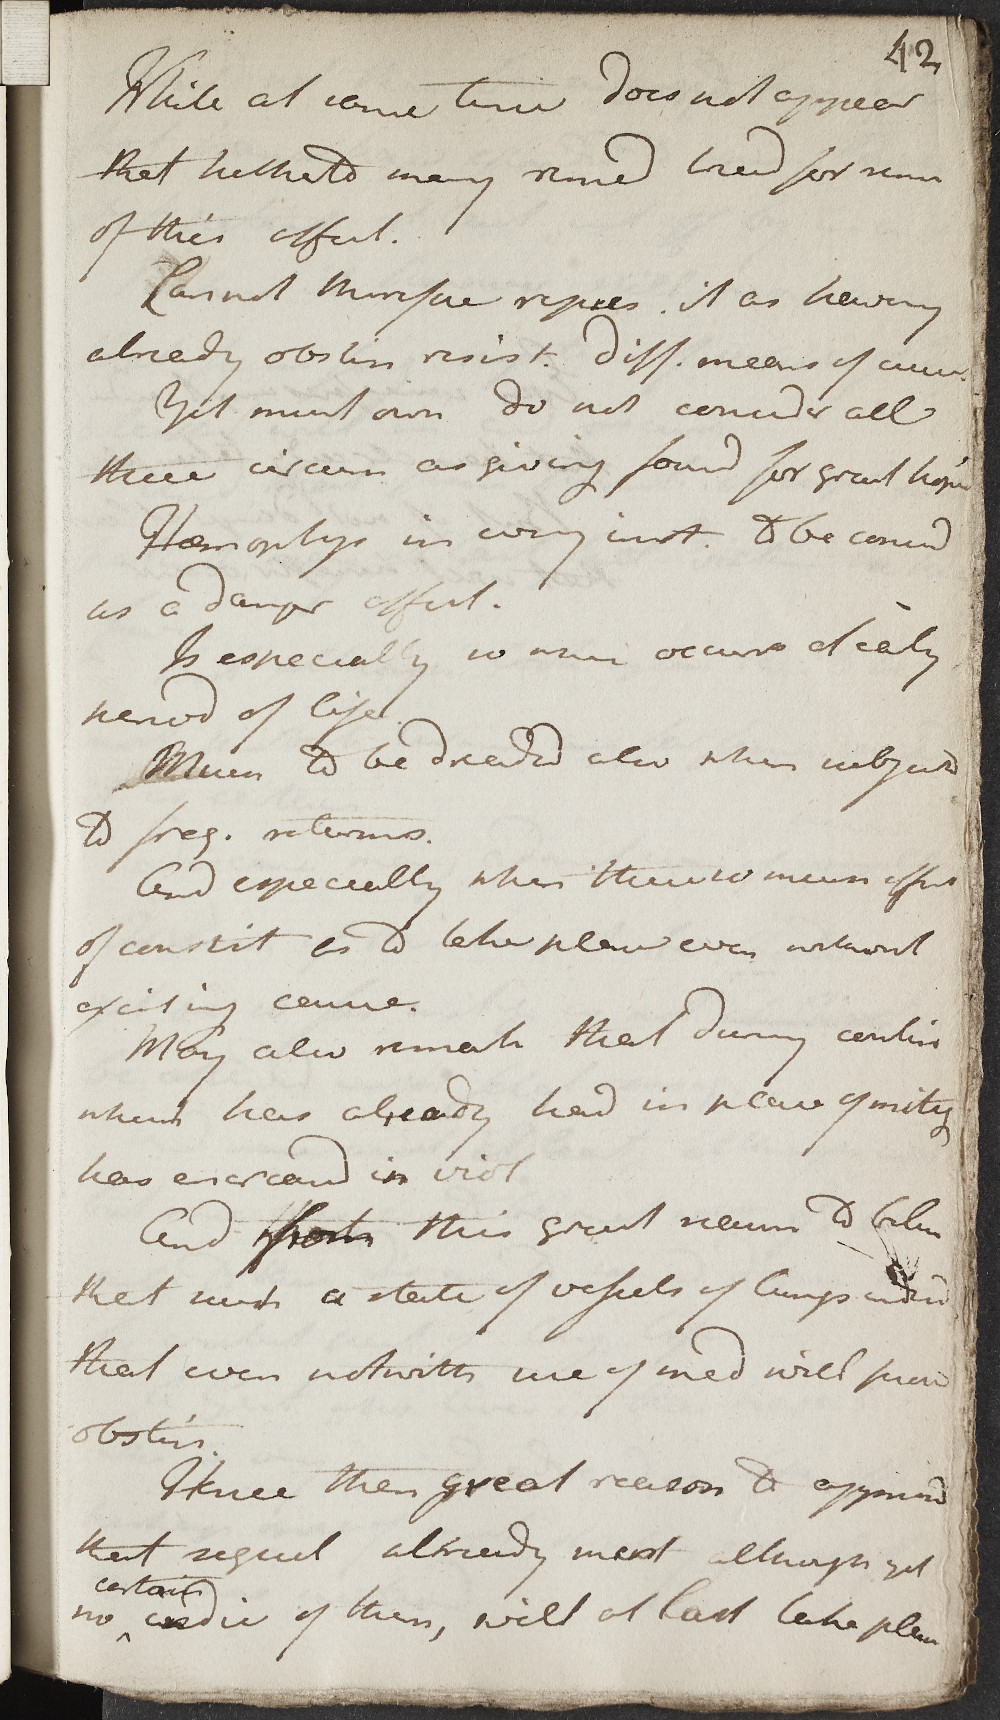 42
While at same time does not appear
that hitherto many remed tried for remov
of this affect.
Cannot therefore repres. it as having
already obstin resist. diff. means of cure.
Yet must own do not consider all
these circum as giving found for great hope
Hæmoptys in every inst. to be consid
as a danger affect.
Is especially so when occurs at early
period of life.
Much to be dreaded also when subject
to freq. returns.
And especially when there so much affect
of constit as to take place even without
exciting cause.
May also remark that during contin
which has already had in place of mitig
has encreased in viol
And from this great reason to belie
that such a state of vessels of lungs
that even notwith use of med will prove
obstin.
Hence then great reason to apprehend
that sequel already ment although yet
certain
no indic of them, will at last take place